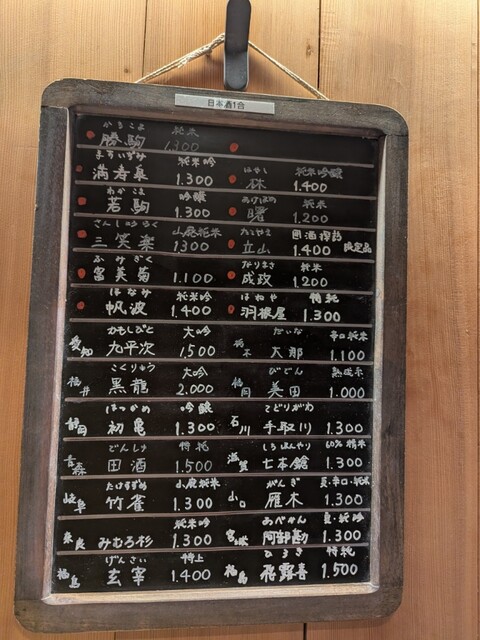 日本酒1合
かちこま 純米
勝駒 1.300
まろいずみ 純米吟
満寿泉 1.300
わか こま 吟醸
若駒 1.300
さんしょうらく 山廃純米
三笑楽 1300
ふみぎく
富美菊 1.100
ほなみ 純米吟
帆波 1.400
かもしびと 大吟
愛知 九平次 1.500
こくりゅう 大吟
福井 黒龍 2.000
はつかめ 吟醸
静岡 初亀 1.300
でんしゅ 特純
青森 田酒 1.500
たけすずめ 山廃純米
岐阜 竹雀 1.300
純米吟
奈良 みむろ杉 1.300
げんさい 特上
福島 玄宰 1.400
はやし 純米吟醸
林 1.400
あけぼの 純米
曙 1.200
たてやま
立山 1.400 限定品
なりまさ 純米
成政 1.200
はねや 特純
羽根屋 1.300
だいな 辛口純米
栃木 大那 1.100
びでん 熟成系
福岡 美田 1.000
てどりがわ
石川 手取川 1.300
しちほんやり 60%精米
滋賀 七本鎗 1.300
がんぎ 夏・辛口・純米
山口 雁木 1.300
あべかん 夏・純吟
宮城 阿部勘 1.300
ひろき 特純
福島 飛露喜 1.500